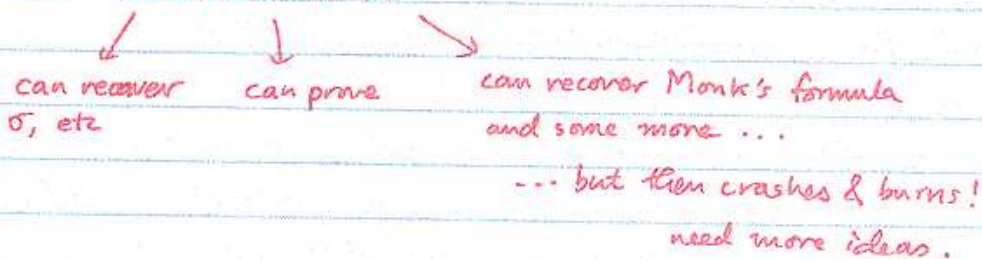 can recover
σ, etc
can prove
can recover Monk's formula
and some more ...
... but then crashes & burns!
need more ideas.